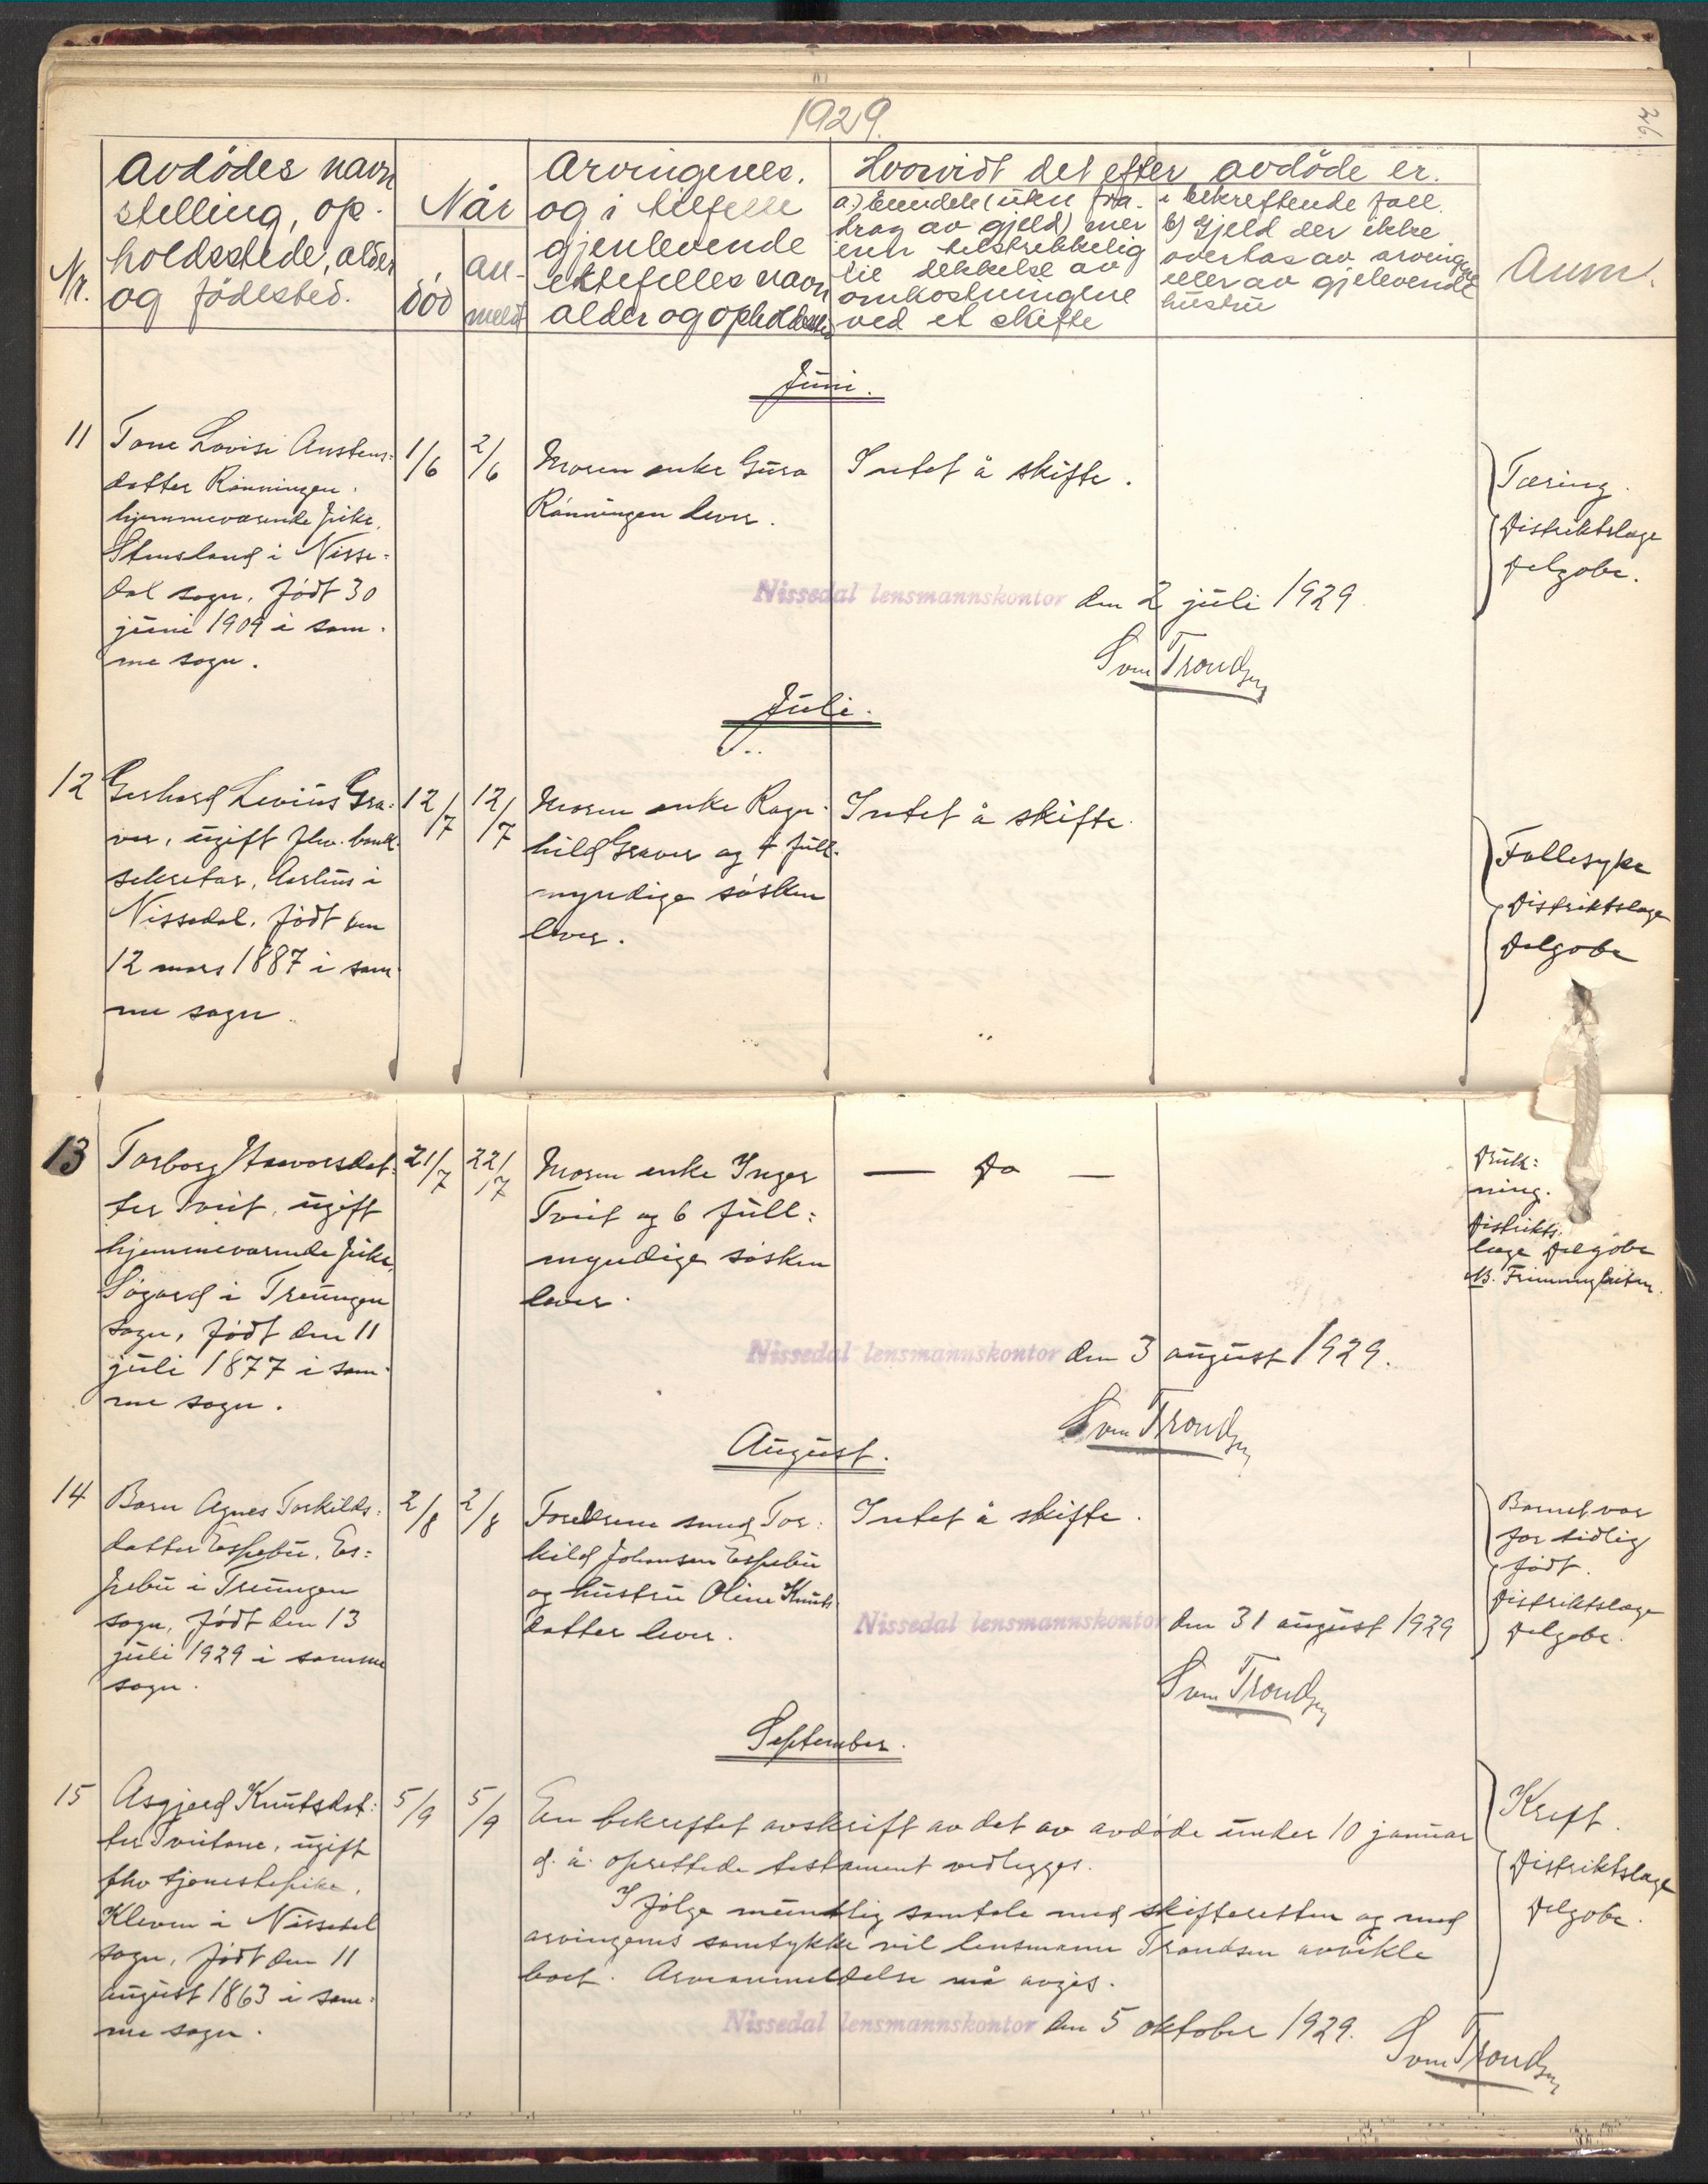 1929.
26.
Nr.
Avdödes navn
stelling, op-
holdsstede, alder
og födested.
Når
död
an-
meldt
Arvingenes,
og i tilfelle
gjenlevende
ektefelles navn
alder og opholdssted
Hvorvidt det efter avdöde er.
a) Eiendele (uten fra-
drag av gjeld) mer
enn tilstrekkelig
til dekkelse av
omkostningene
ved et skifte
i bekreftende fall.
b) Gjeld der ikke
overtas av arvingene
eller av gjelevende
hustru
Anm.
Juni.
11 Tone Lovise Austens-
datter Rönningen,
hjemmeværende pike,
Stensland i Nisse-
dal sogn, født 30
juni 1909 i sam-
me sogn.
1/6 2/6
Moren enke Guro
Rönningen lever.
Intet å skifte.
Tæring.
Distriktslæge
Felgobe.
Nissedal lensmannskontor den 2 juli 1929.
Sven Trondsen
Juli.
12 Gerhard Levius Gra-
ver, ugift fhv. bank-
sekretær, Aarhus i
Nissedal, født den
12 mars 1887 i sam-
me sogn.
12/7 12/7
Moren enke Ragn-
hild Graver og 4 full-
myndige søsken
lever.
Intet å skifte.
Fallesyke
Distriktslæge
Felgobe
13 Torborg Havorsdat-
ter Tveit, ugift
hjemmeværende pike,
Søgard i Treungen
sogn, født den 11
juli 1877 i sam-
me sogn.
21/7 22/7
Moren enke Inger
Tveit og 6 full-
myndige søsken
lever.
— Do —
Druk-
ning.
Distrikts-
læge Felgobe
Nissedal lensmannskontor den 3 august 1929.
Sven Trondsen
August.
14 Barn Agnes Torkilds-
datter Espebu, Es-
pebu i Treungen
sogn, født den 13
juli 1929 i samme
sogn.
2/8 2/8
Foreldrene smed Tor-
kild Johansen Espebu
og hustru Oline Knuts-
datter lever.
Intet å skifte.
Barnet var
for tidlig
født.
Distriktslæge
Felgobe.
Nissedal lensmannskontor den 31 august 1929
Sven Trondsen
September.
15 Asgjerd Knutsdat-
ter Tveitane, ugift
fhv tjenestepike,
Kleven i Nissedal
sogn, født den 11
august 1863 i sam-
me sogn.
5/9 5/9
En bekreftet avskrift av det av avdøde under 10 januar
d. å. oprettede testament vedlegges.
Ifølge muntlig samtale med skifteretten og med
arvingenes samtykke vil lensmann Trondsen avvikle
boet. Arveanmeldelse må avgis.
Kreft.
Distriktslæge
Felgobe.
Nissedal lensmannskontor den 5 oktober 1929.
Sven Trondsen